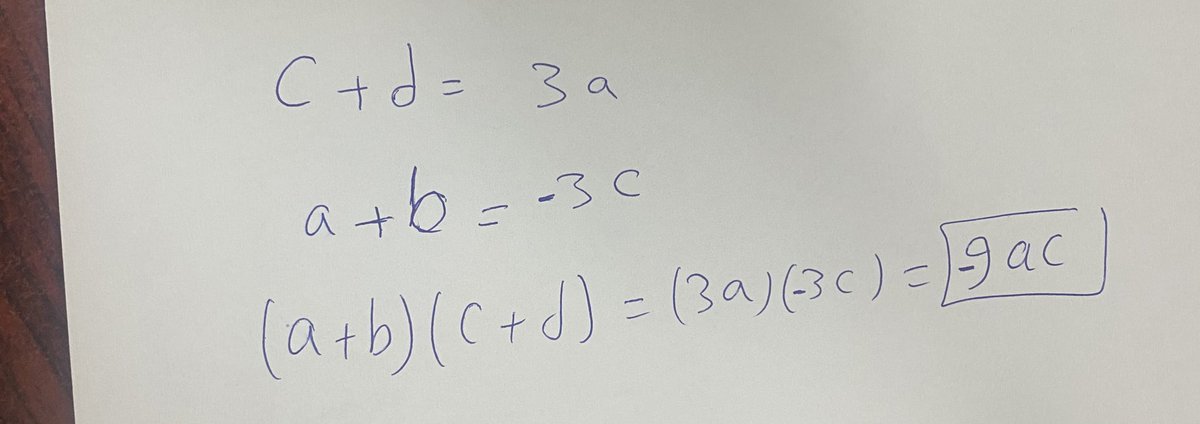 C + d = 3a
a + b = -3c
(a+b)(c+d) = (3a)(-3c) = -9ac